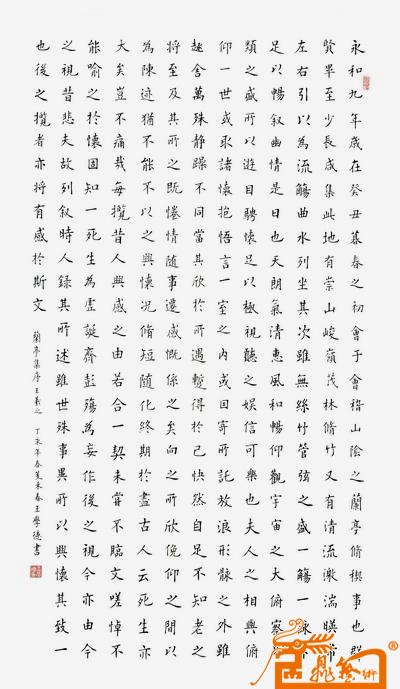 永和九年歲在癸丑暮春之初會于會稽山陰之蘭亭脩禊事也群
賢畢至少長咸集此地有崇山峻嶺茂林脩竹又有清流激湍暎帶
左右引以為流觴曲水列坐其次雖無絲竹管弦之盛一觴一詠
足以暢叙幽情是日也天朗氣清惠風和暢仰觀宇宙之大俯察
類之盛所以遊目騁懷足以極視聽之娛信可樂也夫人之相與俯
仰一世或取諸懷抱悟言一室之內或因寄所託放浪形骸之外雖
趣舍萬殊静躁不同當其欣於所遇蹔得於己快然自足不知老之
將至及其所之既惓情隨事遷感慨係之矣向之所欣俛仰之間以
為陳迹猶不能不以之興懷況脩短隨化終期於盡古人云死生亦
大矣豈不痛哉每攬昔人興感之由若合一契未甞不臨文嗟悼不
能喻之於懷固知一死生為虛誕齊彭殤為妄作後之視今亦由今
之視昔悲夫故列叙時人錄其所述雖世殊事異所以興懷其致一
也後之攬者亦將有感於斯文
蘭亭集序王羲之 丁亥年春王學德書